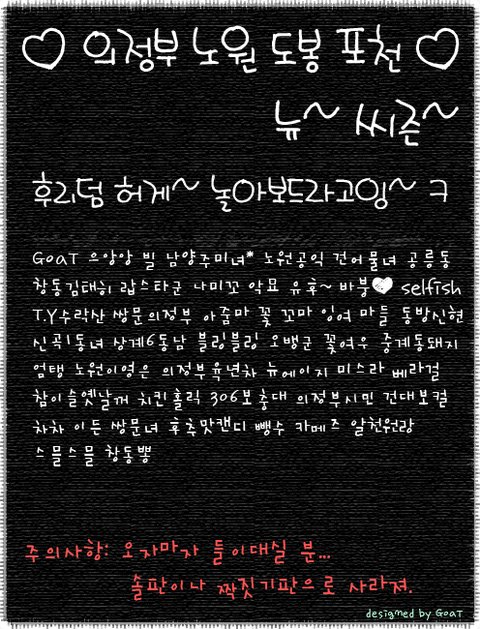 ♡ 의정부 노원 도봉 포천 ♡
뉴~ 씨즌~
후리덤 허게~ 놀아보드라고잉~ ㅋ
GoaT 으앙앙 빌 남양주미녀* 노원공익 건어물녀 공릉동
창동김태희 랍스타군 나미꼬 악묘 유후~ 바붕♥ selfish
T.Y수락산 쌍문의정부 아줌마 꽃 꼬마 잉여 마들 동방신현
신곡1동녀 상계6동남 블링블링 오뱅군 꽃여우 중계동돼지
엄탱 노원이영은 의정부육년차 뉴에이지 미스라 베라걸
참이슬옛날꺼 치킨홀릭 306보충대 의정부시민 건대보컬
차차 이든 쌍문녀 후추맛캔디 뺑수 카메즈 알천원랑
스믈스믈 창동뽕
주의사항: 오자마자 들이대실 분...
솔판이나 짝짓기판으로 사라져.
designed by GoaT